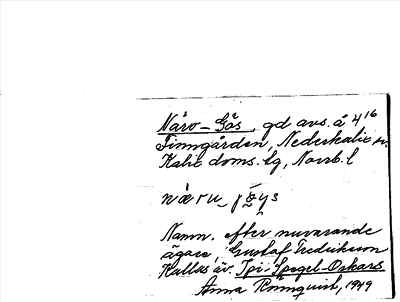 Näro-Gås, gd avs. å 4¹⁶
Finngården, Nederkalix sn.
Kalix doms. lg, Norrb. l
Namn. efter nuvarande
ägare, Gustaf Fredriksson
Kallas äv. Spi-Spegel-Oskars
Anna Rönnquist, 1949